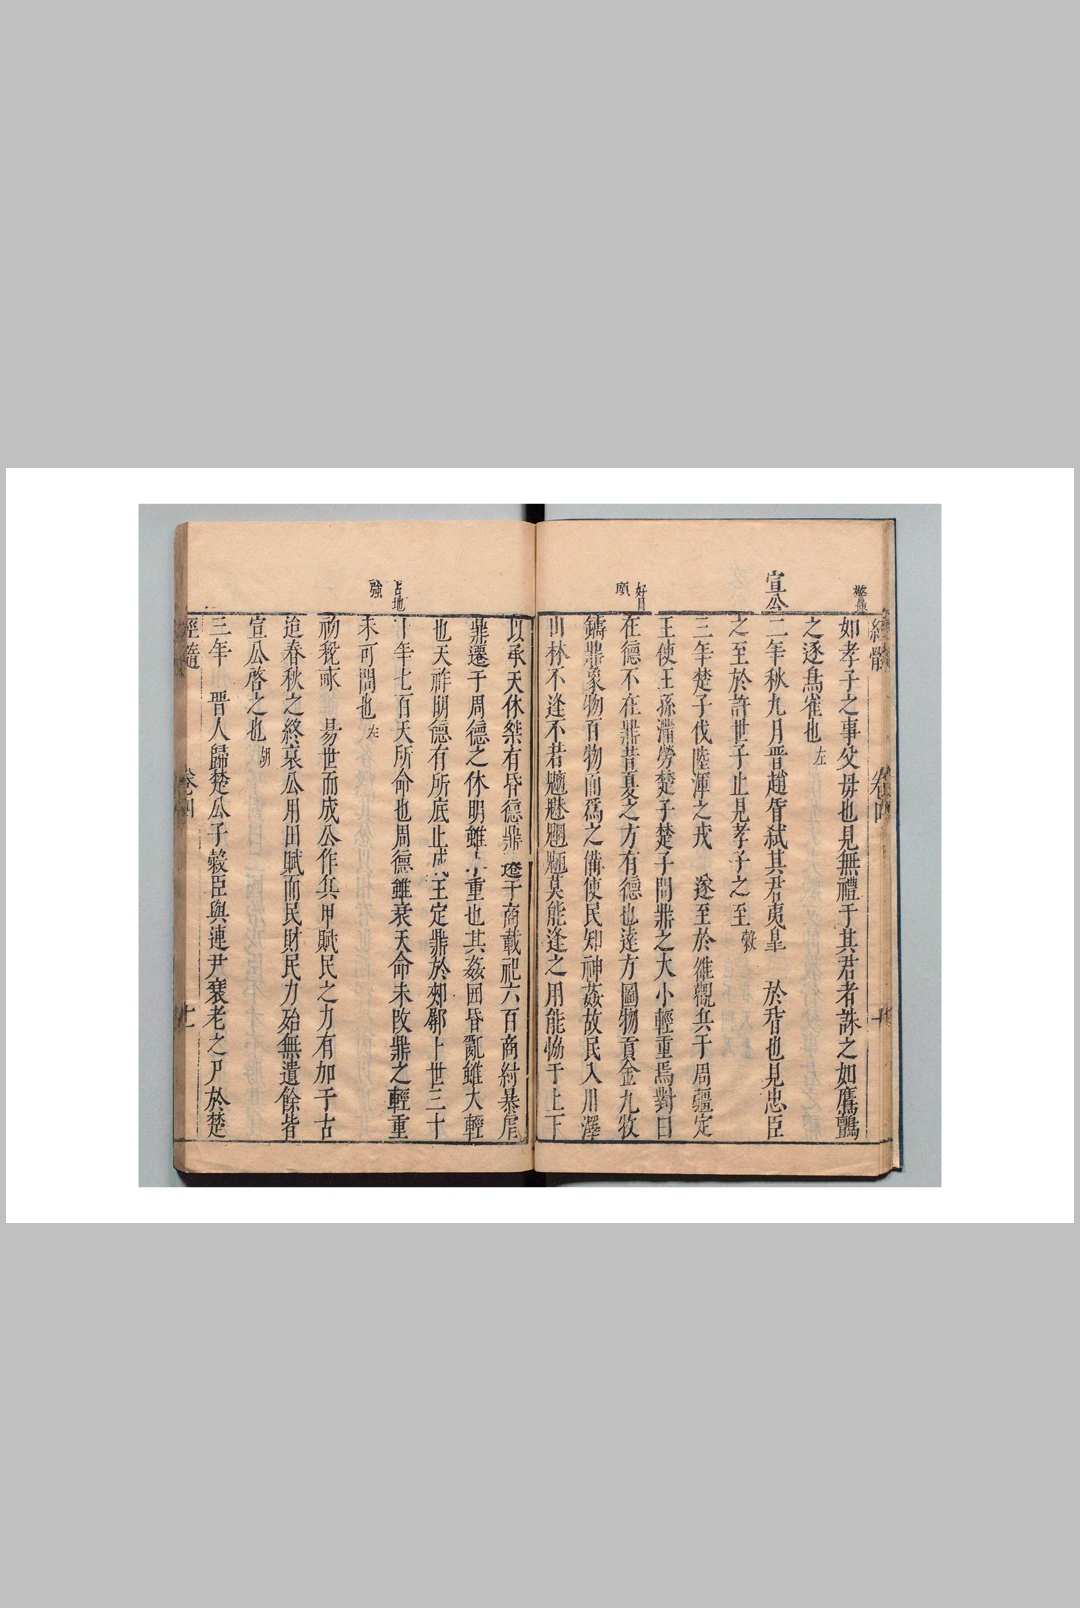 經髓
卷四
十
如孝子之事父母也見無禮于其君者誅之如鷹鸇
之逐鳥雀也左
宣公
二年秋九月晉趙盾弑其君夷皐 於盾也見忠臣
之至於許世子止見孝子之至榖
三年楚子伐陸渾之戎 遂至於雒觀兵于周疆定
王使王孫滿勞楚子楚子問鼎之大小輕重焉對曰
在德不在鼎昔夏之方有德也遠方圖物貢金九牧
鑄鼎象物百物而爲之備使民知神姦故民入川澤
山林不逢不若魑魅魍魎莫能逢之用能恊于上下
以承天休桀有昏德鼎遷于商載祀六百商紂暴虐
鼎遷于周德之休明雖小重也其姦囘昏亂雖大輕
也天祚明德有所底止成王定鼎於郟鄏卜世三十
卜年七百天所命也周德雖衰天命未改鼎之輕重
未可問也左
初稅畝 易世而成公作兵甲賦民之力有加于古
迨春秋之終哀公用田賦而民財民力殆無遺餘皆
宣公啓之也胡
三年 晉人歸楚公子榖臣與連尹襄老之尸於楚
經髓
卷四
十一